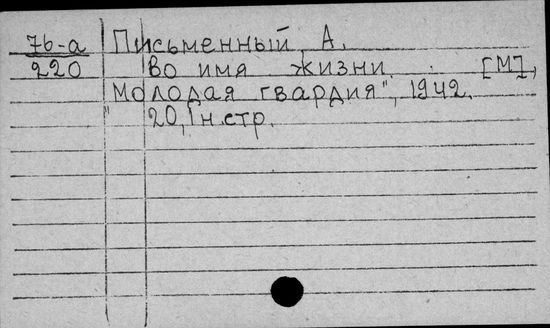 76-а Письменный, А.
220 Во имя жизни. [М],
"Молодая гвардия", 1942.
20,1 н.стр.